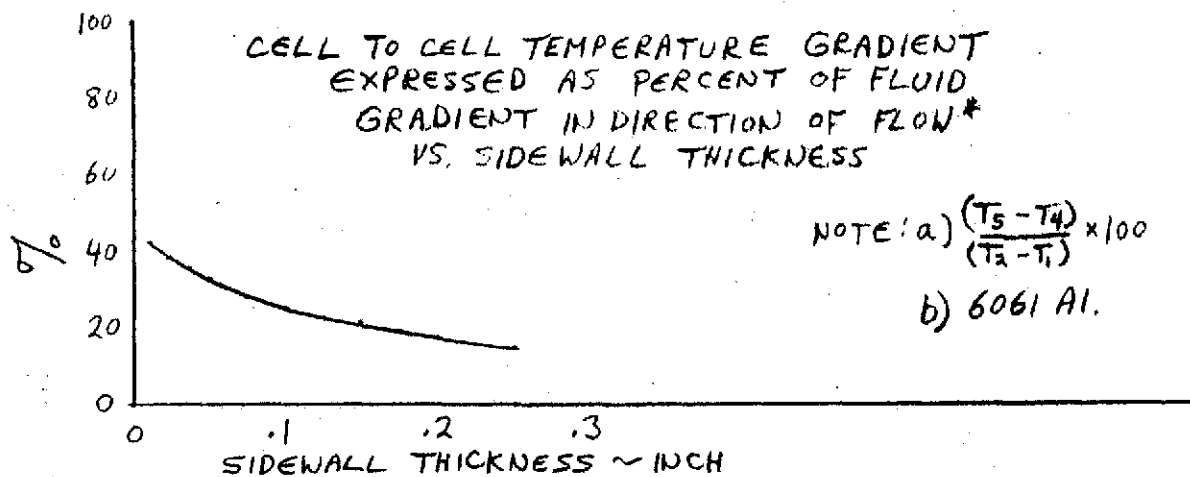 CELL TO CELL TEMPERATURE GRADIENT
EXPRESSED AS PERCENT OF FLUID
GRADIENT IN DIRECTION OF FLOW*
VS. SIDEWALL THICKNESS
100
80
60
40
20
0
%
NOTE: a) (T5 - T4) / (T2 - T1) × 100
b) 6061 Al.
0 .1 .2 .3
SIDEWALL THICKNESS ~ INCH